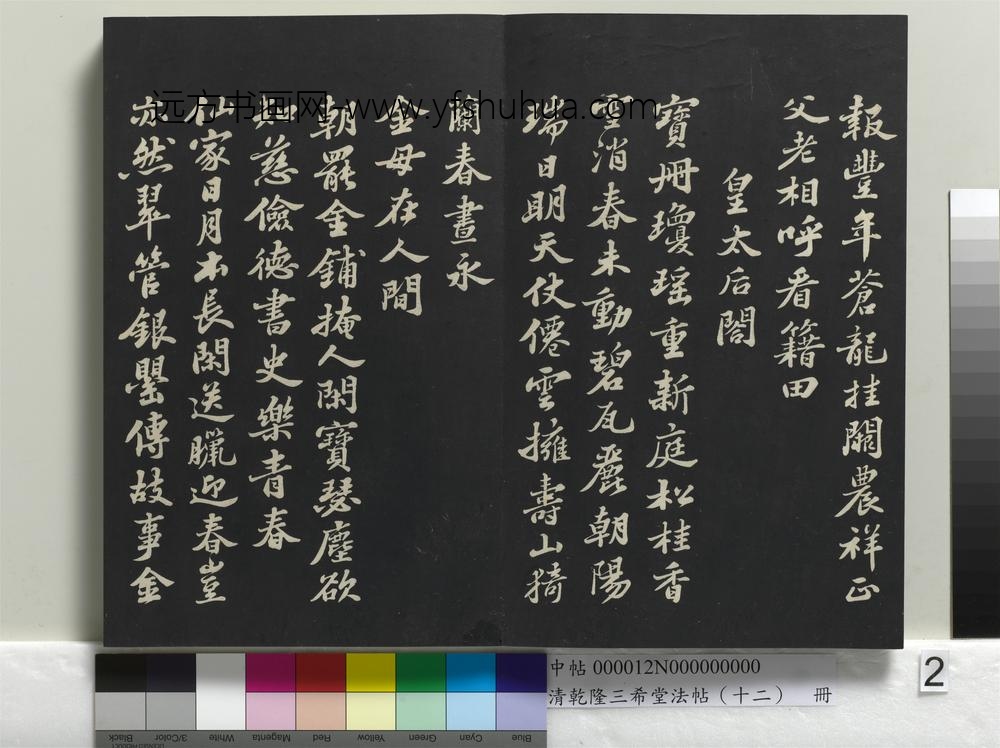 報豐年蒼龍挂闕農祥正
父老相呼看籍田
皇太后閤
寶冊瓊瑤重新庭松桂香
雪消春未動碧瓦麗朝陽
瑞日明天仗僊雲擁壽山猗
蘭春晝永
金母在人間
朝罷金鋪掩人閑寶瑟塵欲
知慈儉德書史樂青春
仙家日月本長閑送臘迎春豈
亦然翠管銀罌傳故事金
远方书画网-www.yfshuhua.com
中帖 000012N000000000
清乾隆三希堂法帖（十二） 冊
2
Black 3/Color White Magenta Red Yellow Green Cyan Blue